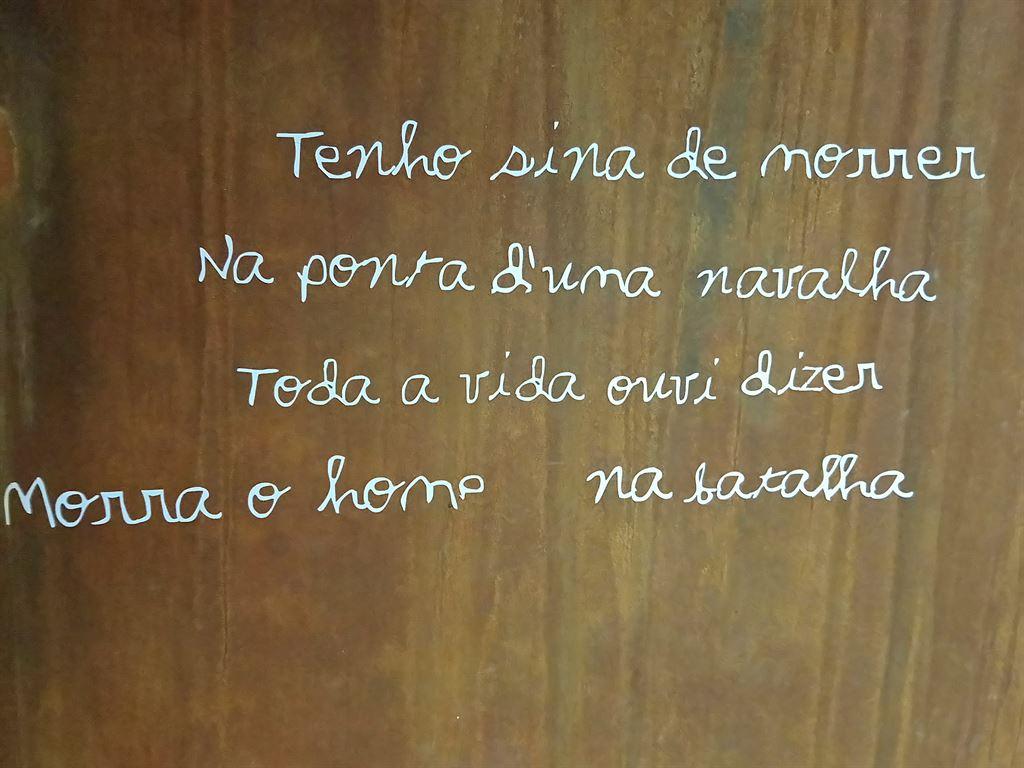 Tenho sina de morrer
Na ponta d'uma navalha
Toda a vida ouvi dizer
Morra o home na batalha